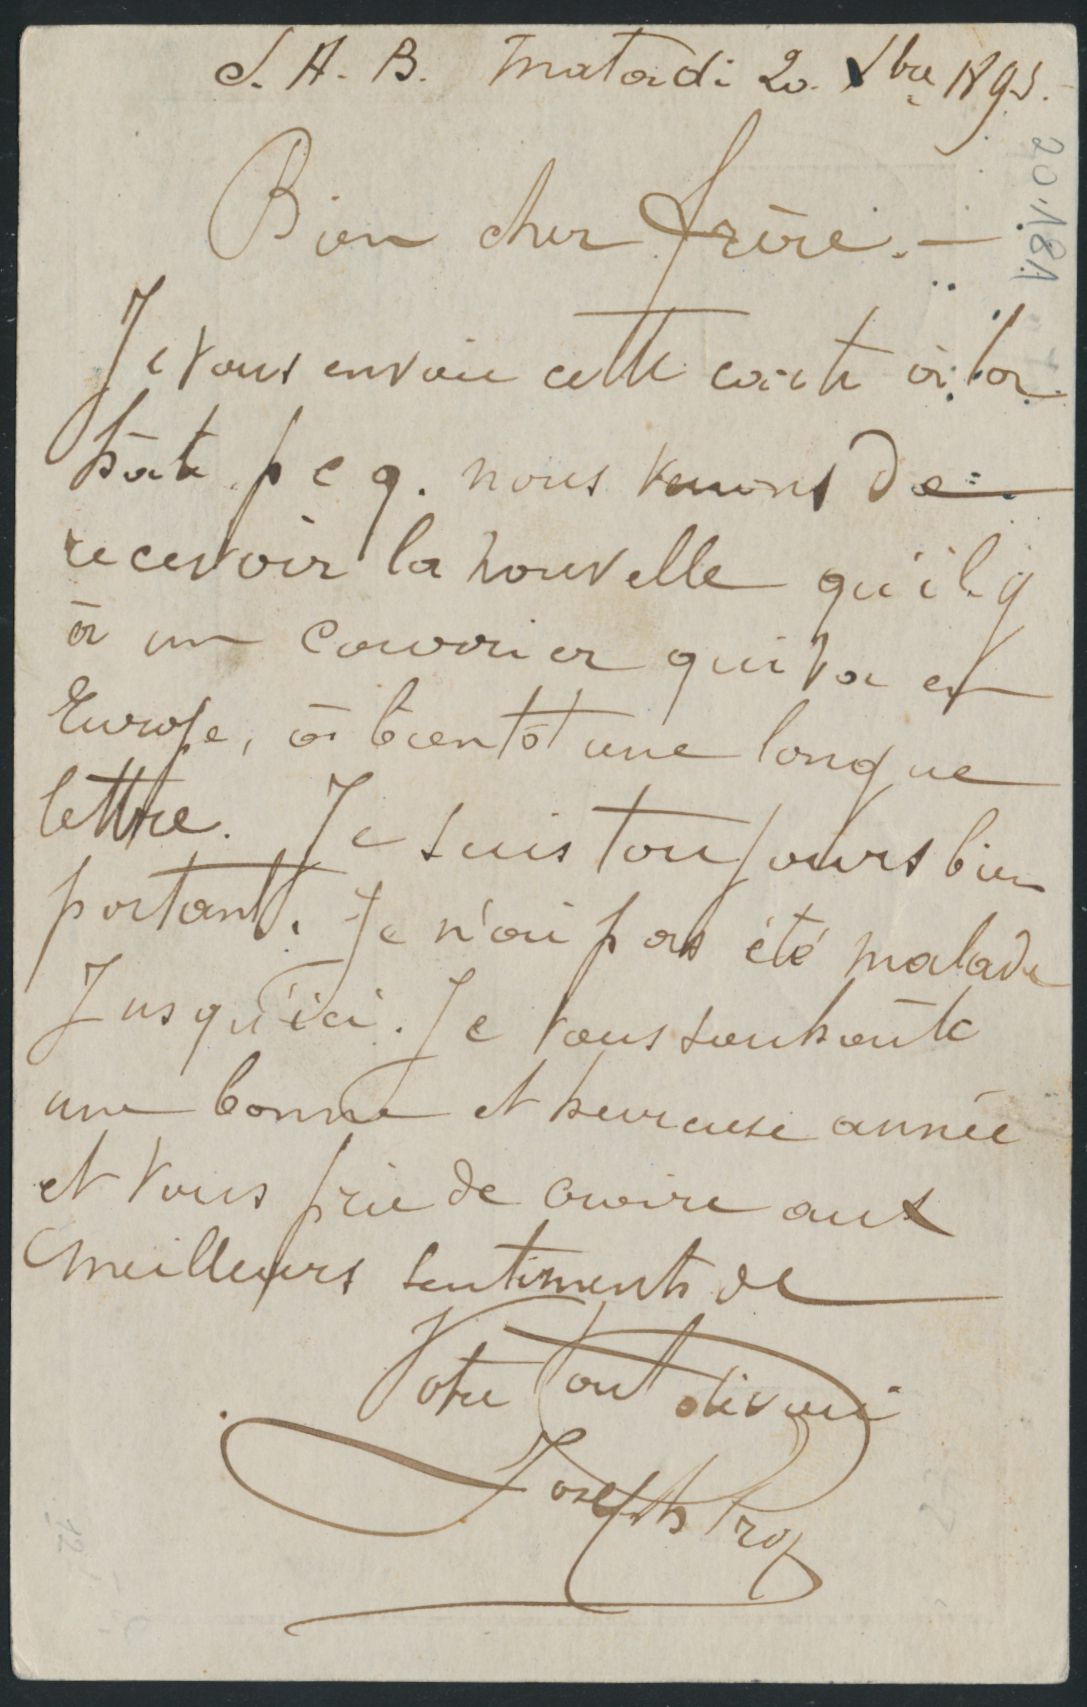 S. A. B. Matadi 20. Xbre 1895.
Bien cher frère. —
Je vous envoie cette carte à la
hâte p c q. nous venons de
recevoir la nouvelle qu'il y
a un courrier qui va en
Europe, à bientôt une longue
lettre. Je suis toujours bien
portant. Je n'ai pas été malade
Jusqu'ici. Je vous souhaite
une bonne et heureuse année
et vous prie de croire aux
meilleurs sentiments de
Votre tout dévoué
Joseph
20.181